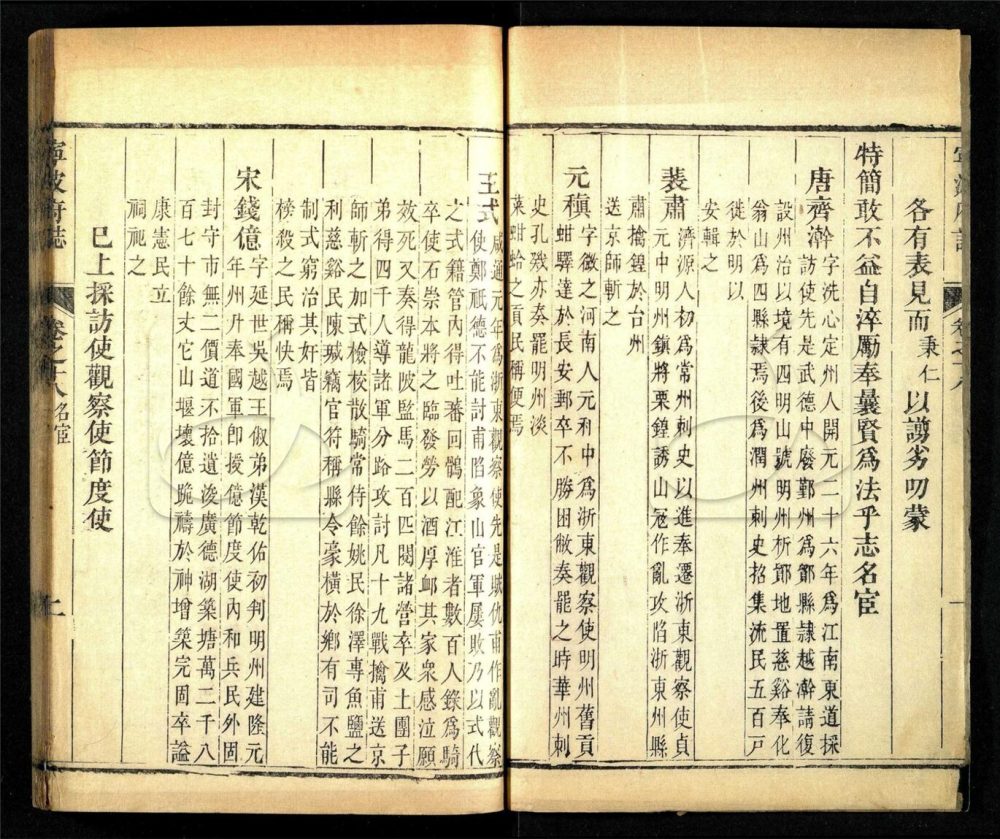 各有表見而秉仁以譾劣叨蒙
特簡敢不益自淬厲奉曩賢爲法乎志名宦
唐齊澣字洗心定州人開元二十六年爲江南東道採
訪使先是武德中廢鄞州爲鄮縣隷越澣請復
設州治以境有四明山號明州析鄮地置慈谿奉化
翁山爲四縣隷焉後爲潤州刺史招集流民五百戸
徙於明以
安輯之
裴肅濟源人初爲常州刺史以進奉遷浙東觀察使貞
元中明州鎮將栗鍠誘山冦作亂攻陷浙東州縣
肅擒鍠於台州
送京師斬之
元稹字微之河南人元和中爲浙東觀察使明州舊貢
蚶驛達於長安郵卒不勝困敝奏罷之時華州刺
史孔戣亦奏罷明州淡
菜蚶蛤之貢民稱便焉
王式咸通元年爲浙東觀察使先是賊仇甫作亂觀察
使鄭祇德不能討甫陷象山官軍屢敗乃以式代
之式籍管内得吐蕃回鶻配江淮者數百人籙爲騎
卒使石崇本將之臨發勞以酒厚䘏其家衆感泣願
效死又奏得龍陂監馬二百匹閱諸營卒及土團子
弟得四千人導諸軍分路攻討凡十九戰擒甫送京
師斬之加式檢校散騎常侍餘姚民徐澤專魚鹽之
利慈谿民陳瑊竊官符稱縣令豪橫於鄉有司不能
制式窮治其奸皆
榜殺之民稱快焉
宋錢億字延世吳越王俶弟漢乾佑初判明州建隆元
年州升奉國軍卽授億節度使内和兵民外固
封守市無二價道不拾遺浚廣德湖築塘萬二千八
百七十餘丈它山堰壞億跪禱於神增築完固卒謚
康憲民立
祠祀之
已上採訪使觀察使節度使
寧波府誌
卷之十八 名宦